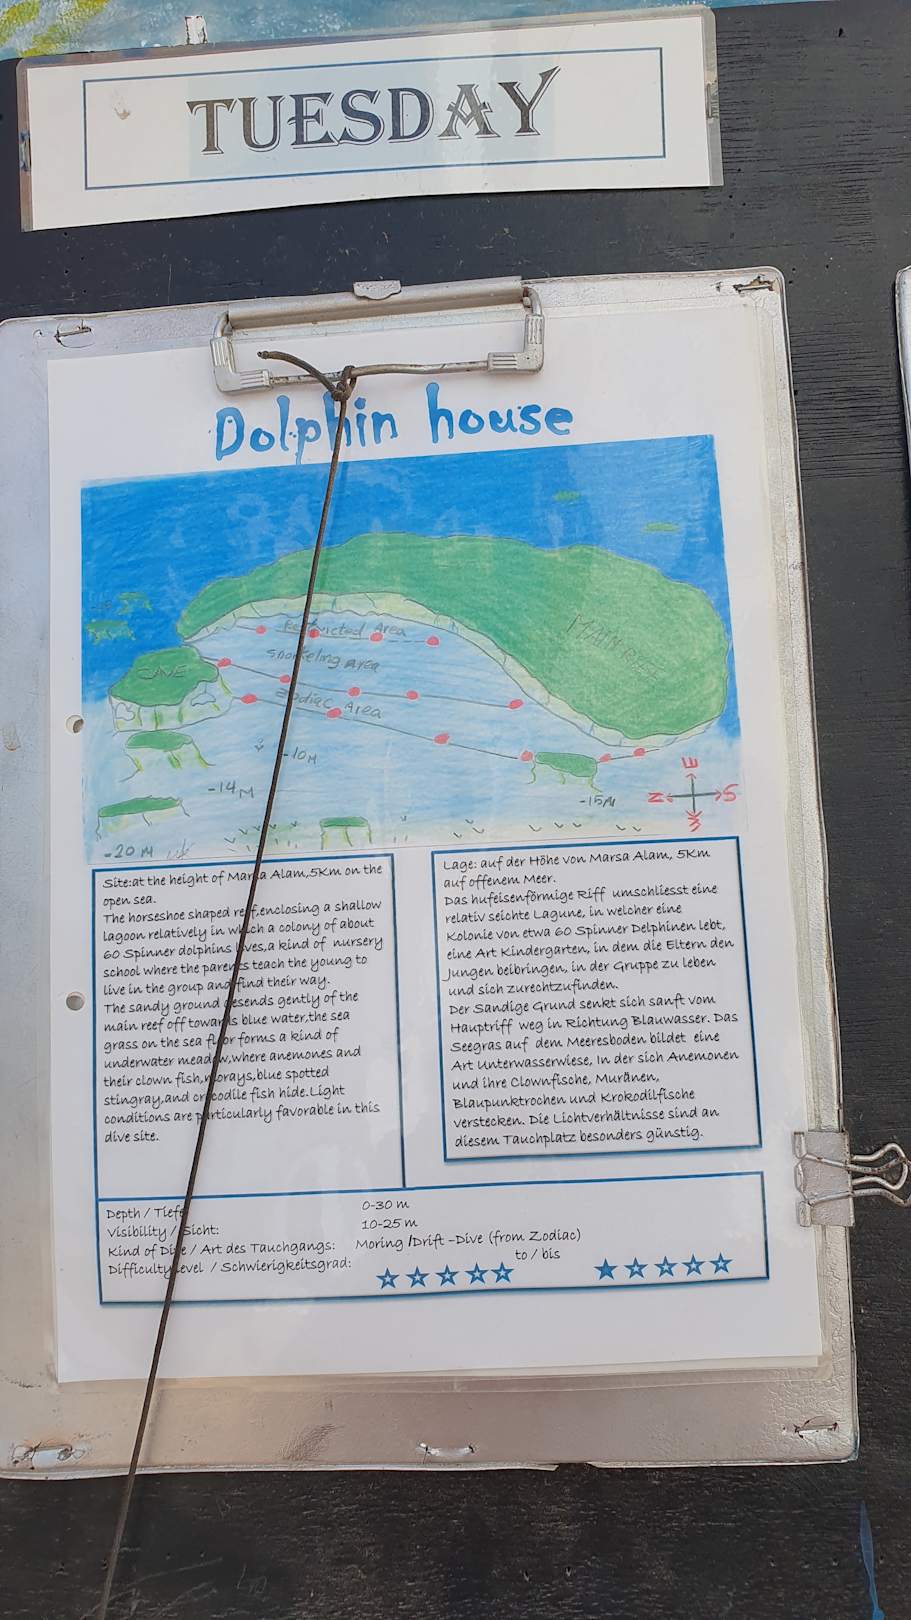 TUESDAY
Dolphin house
Restricted Area
Snorkeling area
Zodiac Area
MAIN
CAVE
-10M
-14M
-15M
-20 M
E
N S
W
Site:at the height of Marsa Alam,5Km on the
open sea.
The horseshoe shaped reef,enclosing a shallow
lagoon relatively in which a colony of about
60 Spinner dolphins lives,a kind of nursery
school where the parents teach the young to
live in the group and find their way.
The sandy ground desends gently of the
main reef off towards blue water,the sea
grass on the sea floor forms a kind of
underwater meadow,where anemones and
their clown fish,morays,blue spotted
stingray,and crocodile fish hide.Light
conditions are particularly favorable in this
dive site.
Lage: auf der Höhe von Marsa Alam, 5Km
auf offenem Meer.
Das hufeisenförmige Riff umschliesst eine
relativ seichte Lagune, in welcher eine
Kolonie von etwa 60 Spinner Delphinen lebt,
eine Art Kindergarten, in dem die Eltern den
Jungen beibringen, in der Gruppe zu leben
und sich zurechtzufinden.
Der Sandige Grund senkt sich sanft vom
Hauptriff weg in Richtung Blauwasser. Das
Seegras auf dem Meeresboden bildet eine
Art Unterwasserwiese, In der sich Anemonen
und ihre Clownfische, Muränen,
Blaupunktrochen und Krokodilfische
verstecken. Die Lichtverhältnisse sind an
diesem Tauchplatz besonders günstig.
Depth / Tiefe 0-30 m
Visibility / Sicht: 10-25 m
Kind of Dive / Art des Tauchgangs: Moring /Drift -Dive (from Zodiac)
Difficulty level / Schwierigkeitsgrad: to / bis